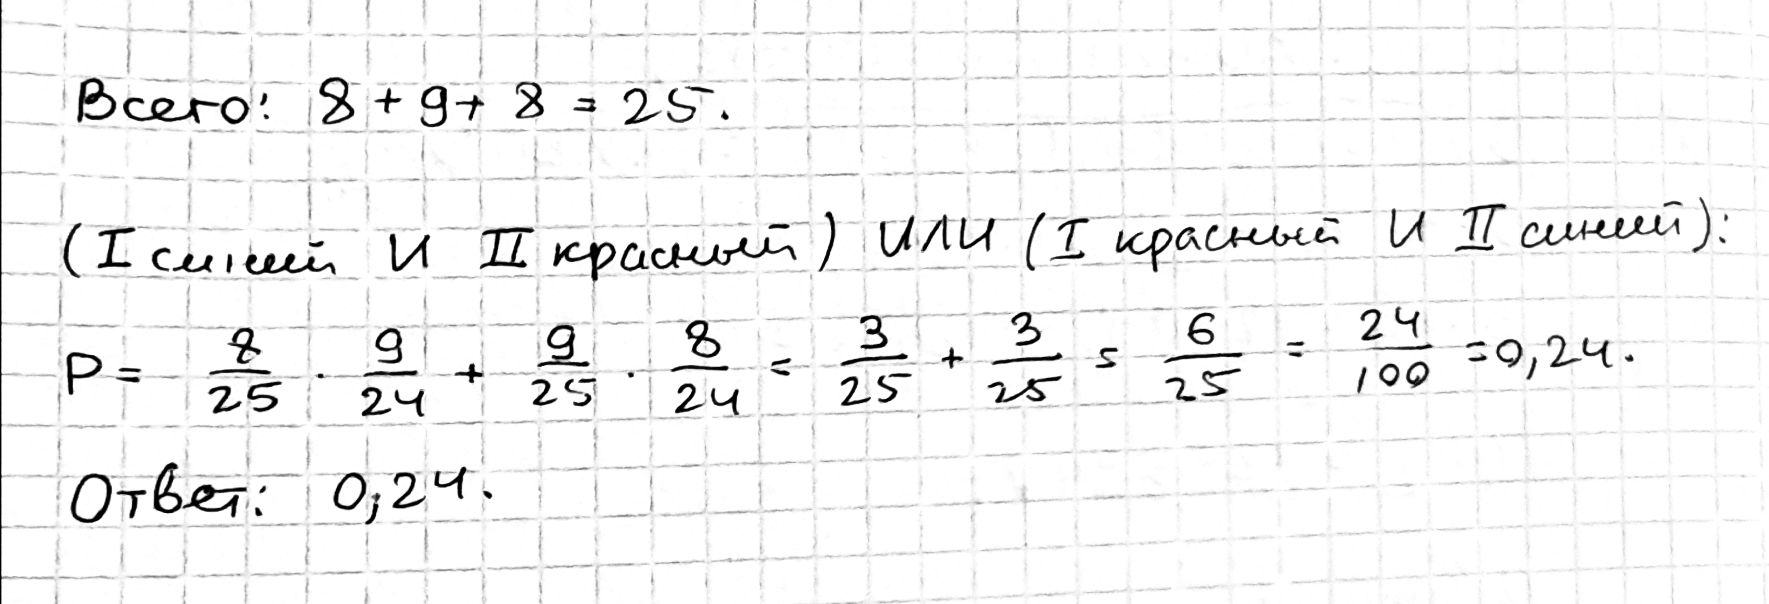 Всего: 8 + 9 + 8 = 25.
(I синий И II красный) ИЛИ (I красный И II синий):
P = 8/25 · 9/24 + 9/25 · 8/24 = 3/25 + 3/25 = 6/25 = 24/100 = 0,24.
Ответ: 0,24.